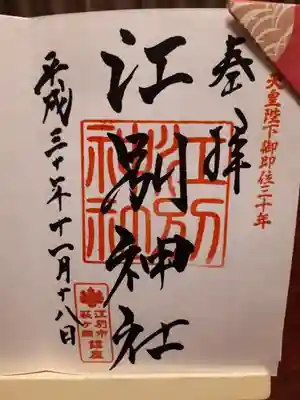 天皇陛下御即位三十年
奉拝
江別神社
江別神社
平成三十年十一月十八日
江別市
萩ヶ岡
鎮座